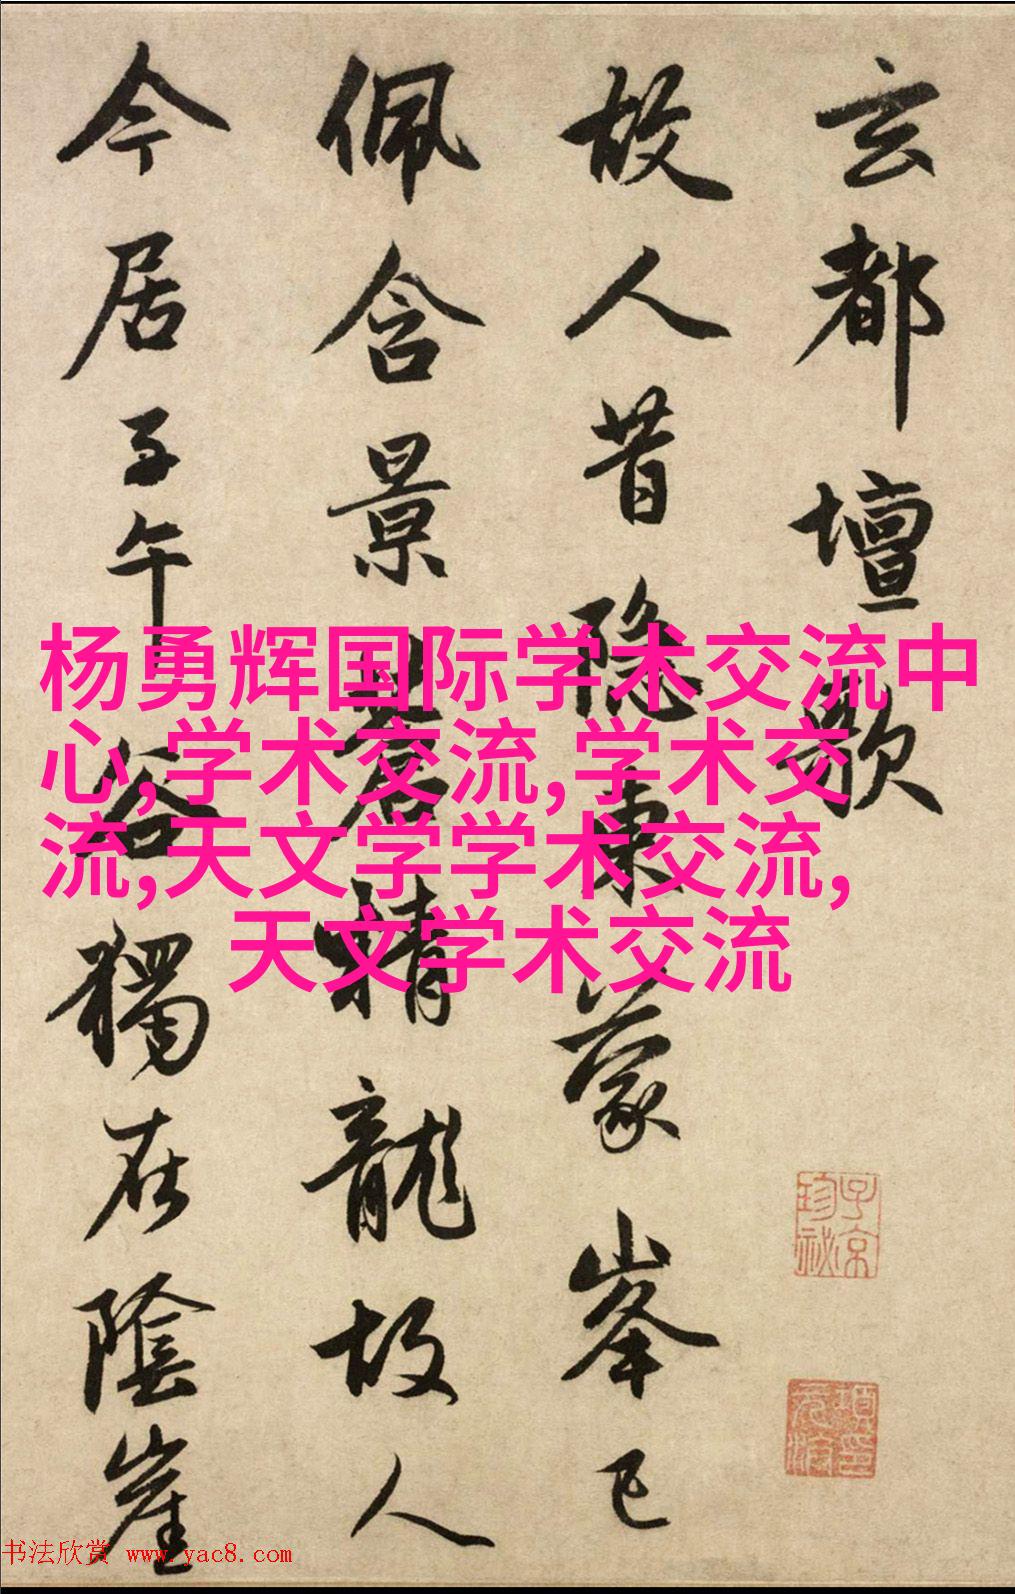 玄都壇歌
故人昔隐東蒙峯已
佩含景蒼精龍故人
今居子午谷獨在陰崖
杨勇辉国际学术交流中
心,学术交流,学术交
流,天文学学术交流,
天文学术交流
子京
珍祕
书法欣赏 www.yac8.com